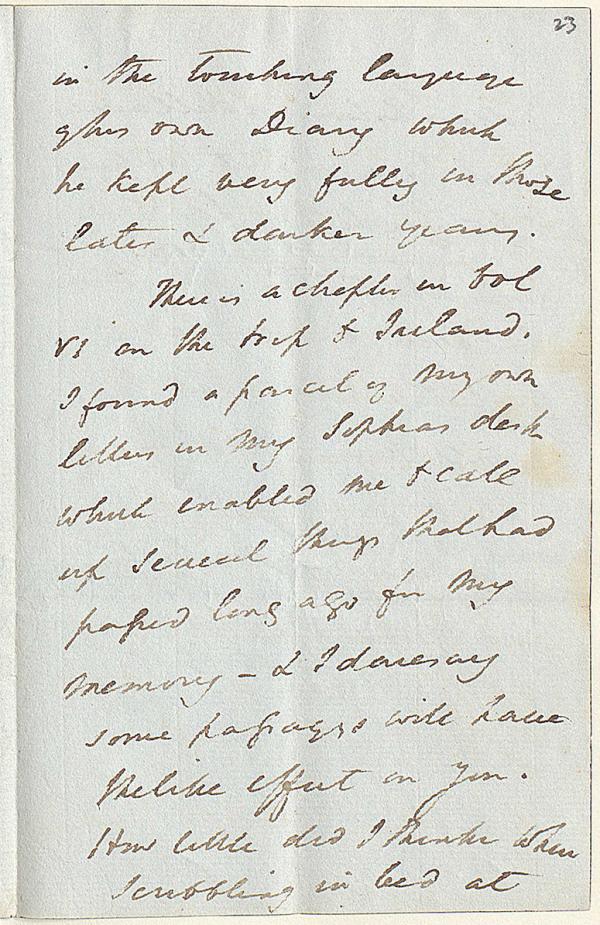 23
in the touching language
of his own Diary which
he kept very fully in those
later & darker years.
There is a chapter in Vol
VI on the trip to Ireland.
I found a parcel of my own
letters in my Sophias desk
which enabled me to call
up several things that had
passed long ago fm my
memory - & I daresay
some passages will have
the like effect on you.
How little did I think when
scribbling in bed at